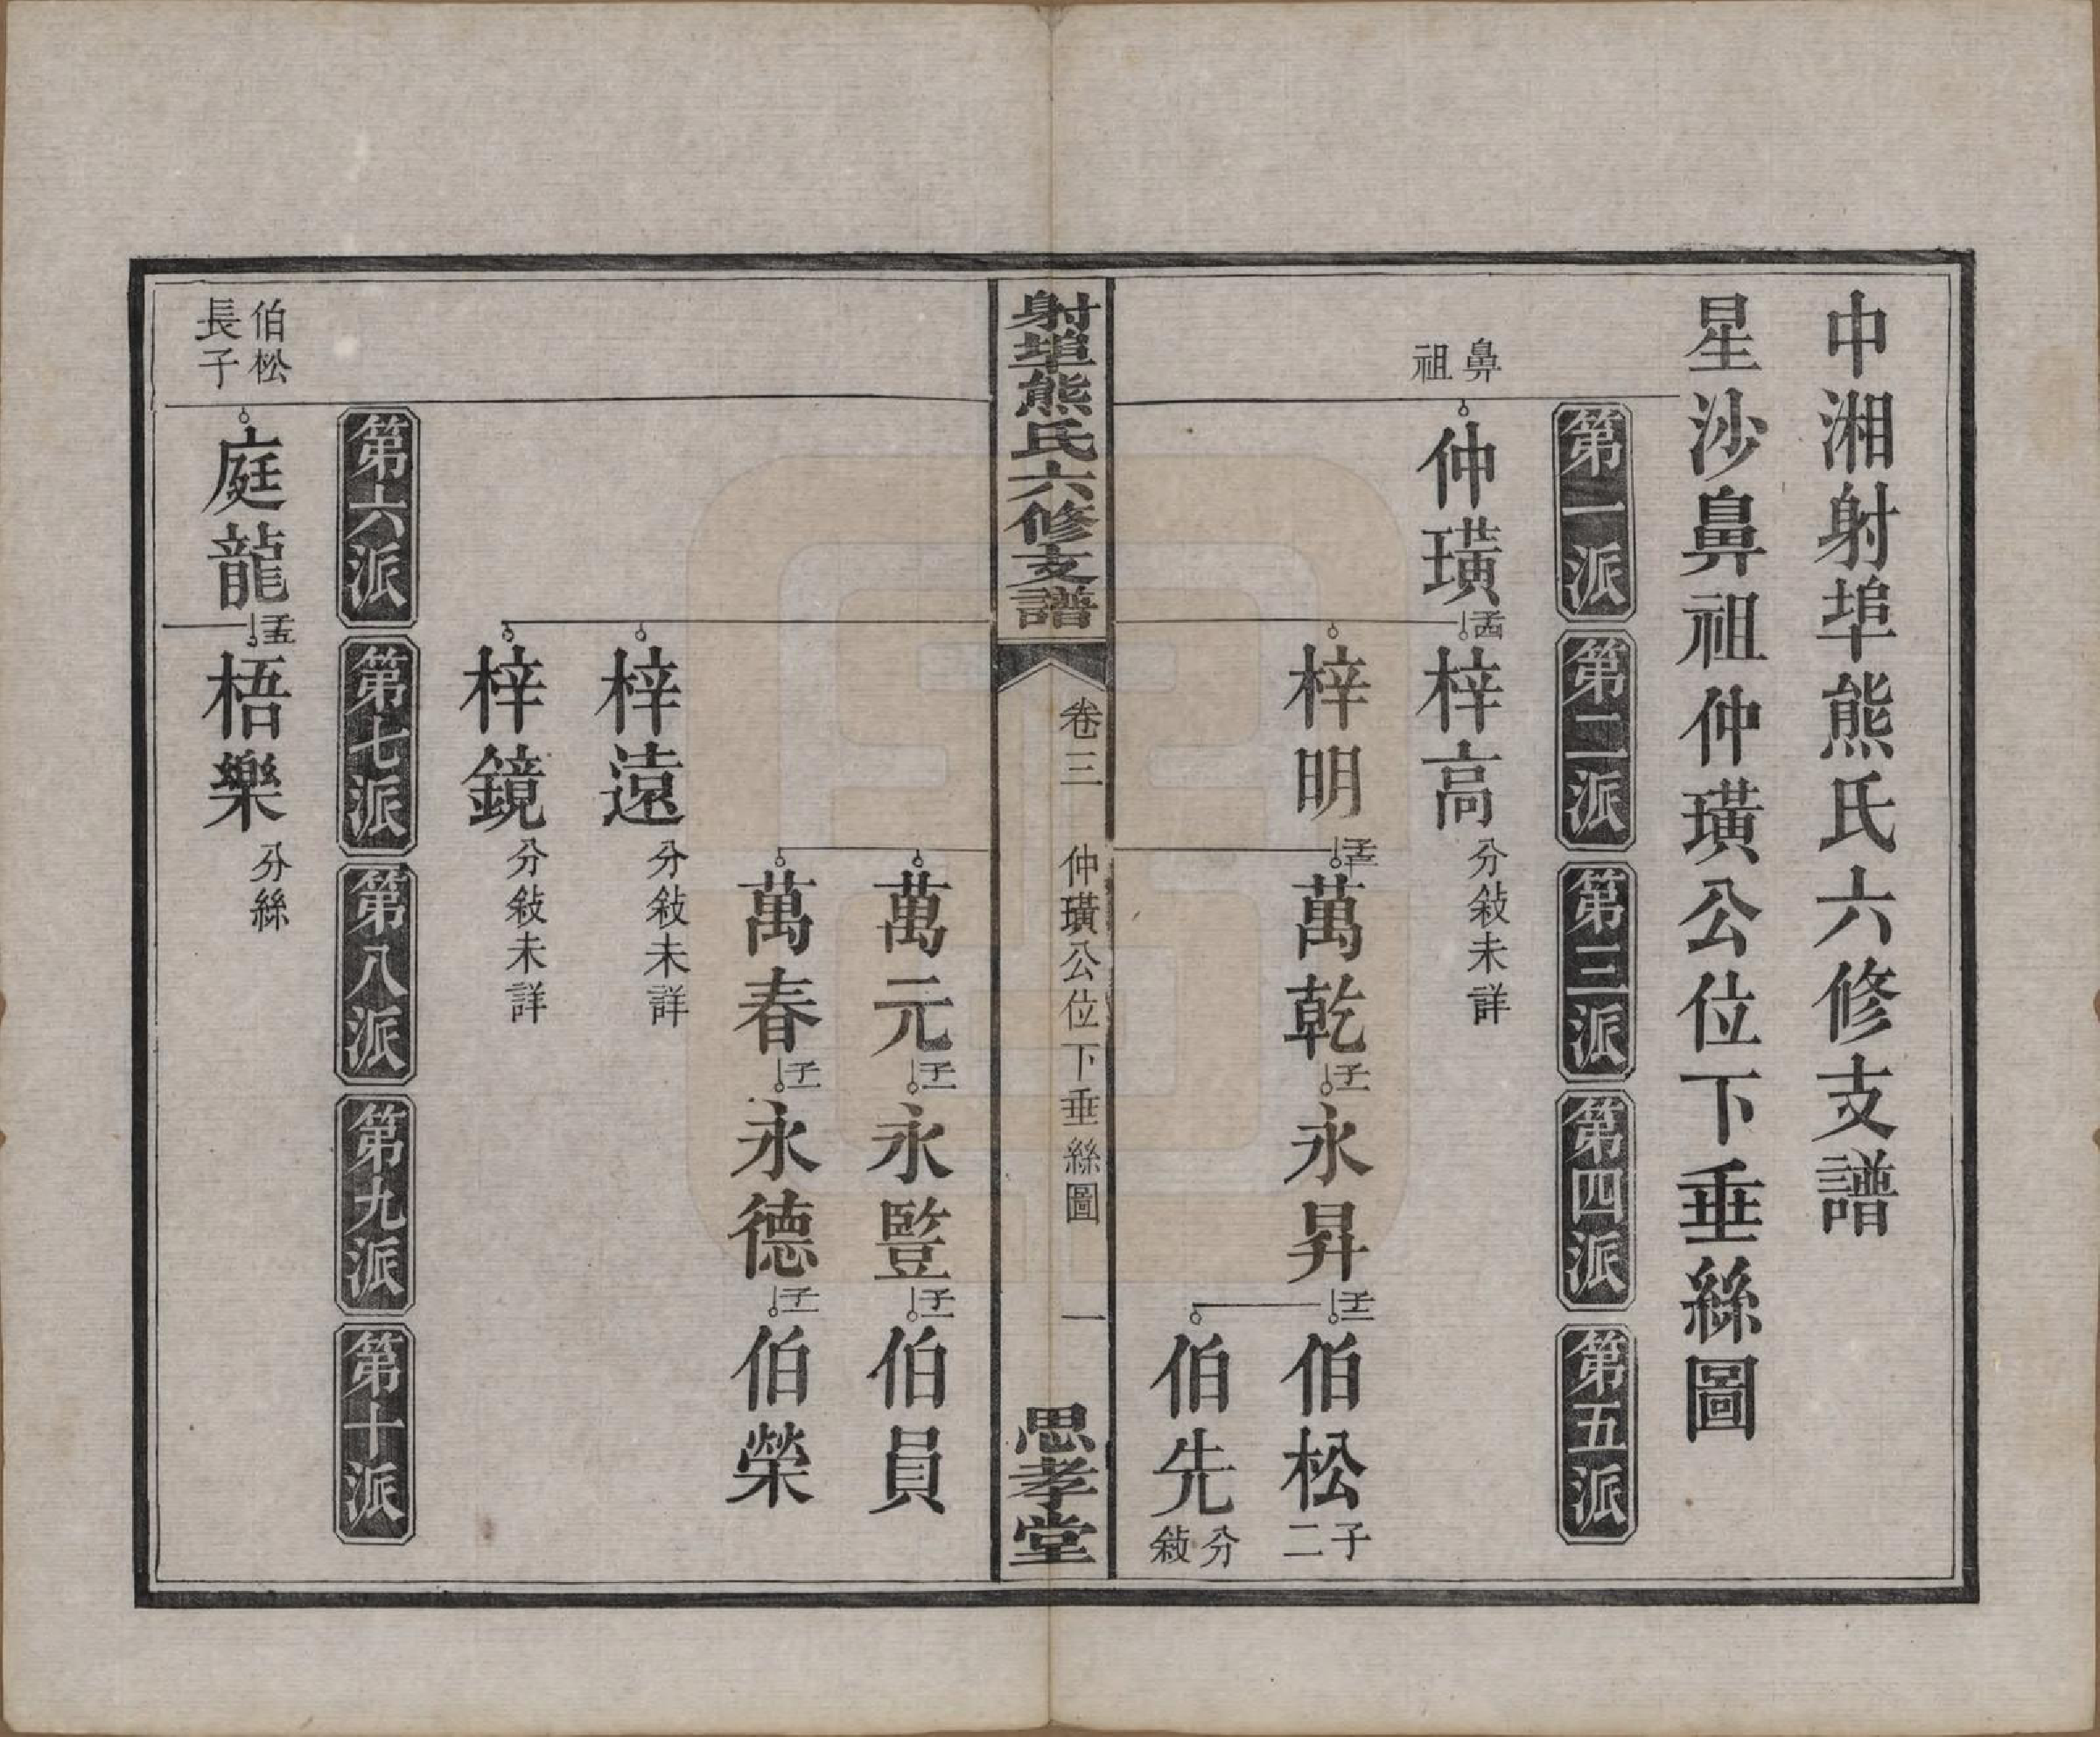 中湘射埠熊氏六修支譜
星沙鼻祖仲璜公位下垂絲圖
第一派 第二派 第三派 第四派 第五派
鼻祖
仲璜 子四 梓高 分敍未詳
梓明 子三 萬乾 子一 永昇 子二 伯松 子二
伯先 分敍
射埠熊氏六修支譜 卷三 仲璜公位下垂絲圖 一 思孝堂
萬元 子一 永豎 子一 伯員
萬春 子一 永德 子一 伯榮
梓遠 分敍未詳
梓鏡 分敍未詳
第六派 第七派 第八派 第九派 第十派
伯松長子
庭龍 子五 梧樂 分絲